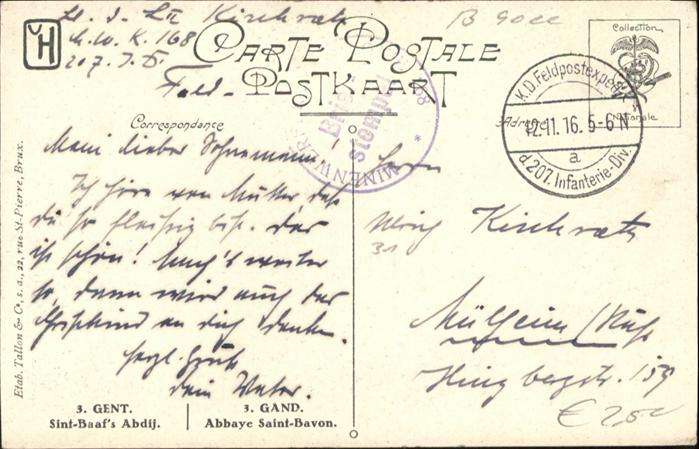 Lt. d. L. II Kirchrath
M.W.K. 168
207. J. D.
Feld-
B 90cc
VH
CARTE POSTALE
POSTKAART
Collection
Nationale
Correspondance
Adresse
K.D. Feldpostexped.
12.11.16. 5-6 N
a
d. 207. Infanterie-Div.
Brief-
stempel
MINENWERF
Mein lieber Sohnemann!
Ich höre von Mutter daß
du so fleißig bist. Das
ist schön! Mach's weiter
so, dann wird auch das
Christkind an dich denken.
Herzl. Gruß
dein Vater.
Herrn
Ulrich Kirchrath
31
Mülheim/Ruhr
bergstr. 159
€ 2,50
Etab. Tallon & Co, s. a., 22, rue St-Pierre, Brux.
3. GENT.
Sint-Baaf's Abdij.
3. GAND.
Abbaye Saint-Bavon.